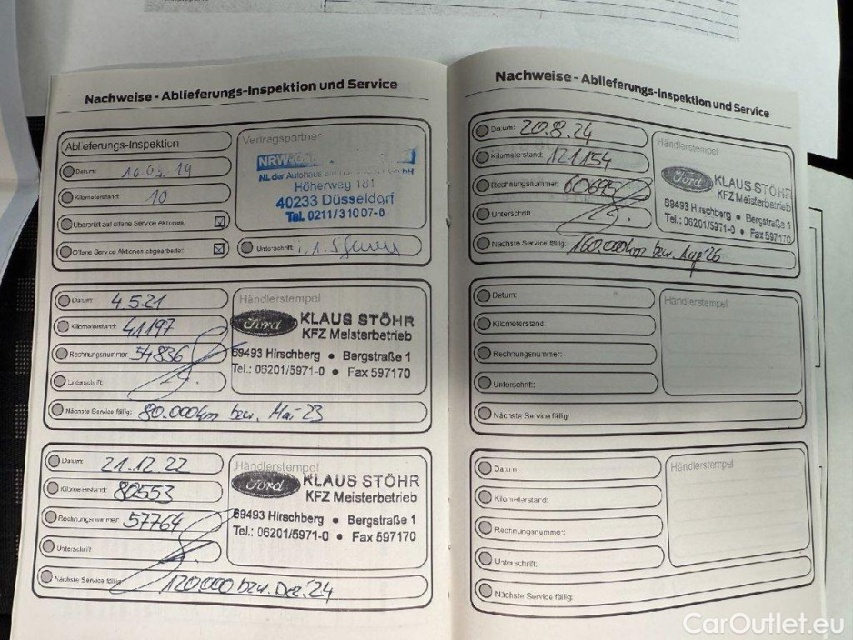 Nachweise - Ablieferungs-Inspektion und Service
Ablieferungs-Inspektion
Datum:
Kilometerstand: 10
Überprüft auf offene Service Aktionen:
Offene Service Aktionen abgearbeitet:
Vertragspartner
NRW-
NL der Autohaus
Höherweg 181
40233 Düsseldorf
Tel. 0211/31007-0
Unterschrift:
Datum: 4.5.21
Kilometerstand: 41197
Rechnungsnummer: 54836
Unterschrift:
Nächste Service fällig: 80.000km bzw. Mai 23
Händlerstempel
Ford KLAUS STÖHR
KFZ Meisterbetrieb
69493 Hirschberg • Bergstraße 1
Tel.: 06201/5971-0 • Fax 597170
Datum: 21.12.22
Kilometerstand: 80553
Rechnungsnummer: 57764
Unterschrift:
Nächste Service fällig: 120.000 bzw. Dez. 24
Händlerstempel
Ford KLAUS STÖHR
KFZ Meisterbetrieb
69493 Hirschberg • Bergstraße 1
Tel.: 06201/5971-0 • Fax 597170
Nachweise - Ablieferungs-Inspektion und Service
Datum: 20.8.24
Kilometerstand: 121154
Rechnungsnummer: 60695
Unterschrift:
Nächste Service fällig: 160.000km bzw. Aug 26
Händlerstempel
Ford KLAUS STÖHR
KFZ Meisterbetrieb
69493 Hirschberg • Bergstraße 1
Tel.: 06201/5971-0 • Fax 597170
Datum:
Kilometerstand:
Rechnungsnummer:
Unterschrift:
Nächste Service fällig:
Händlerstempel
Datum:
Kilometerstand:
Rechnungsnummer:
Unterschrift:
Nächste Service fällig:
Händlerstempel
CarOutlet.eu